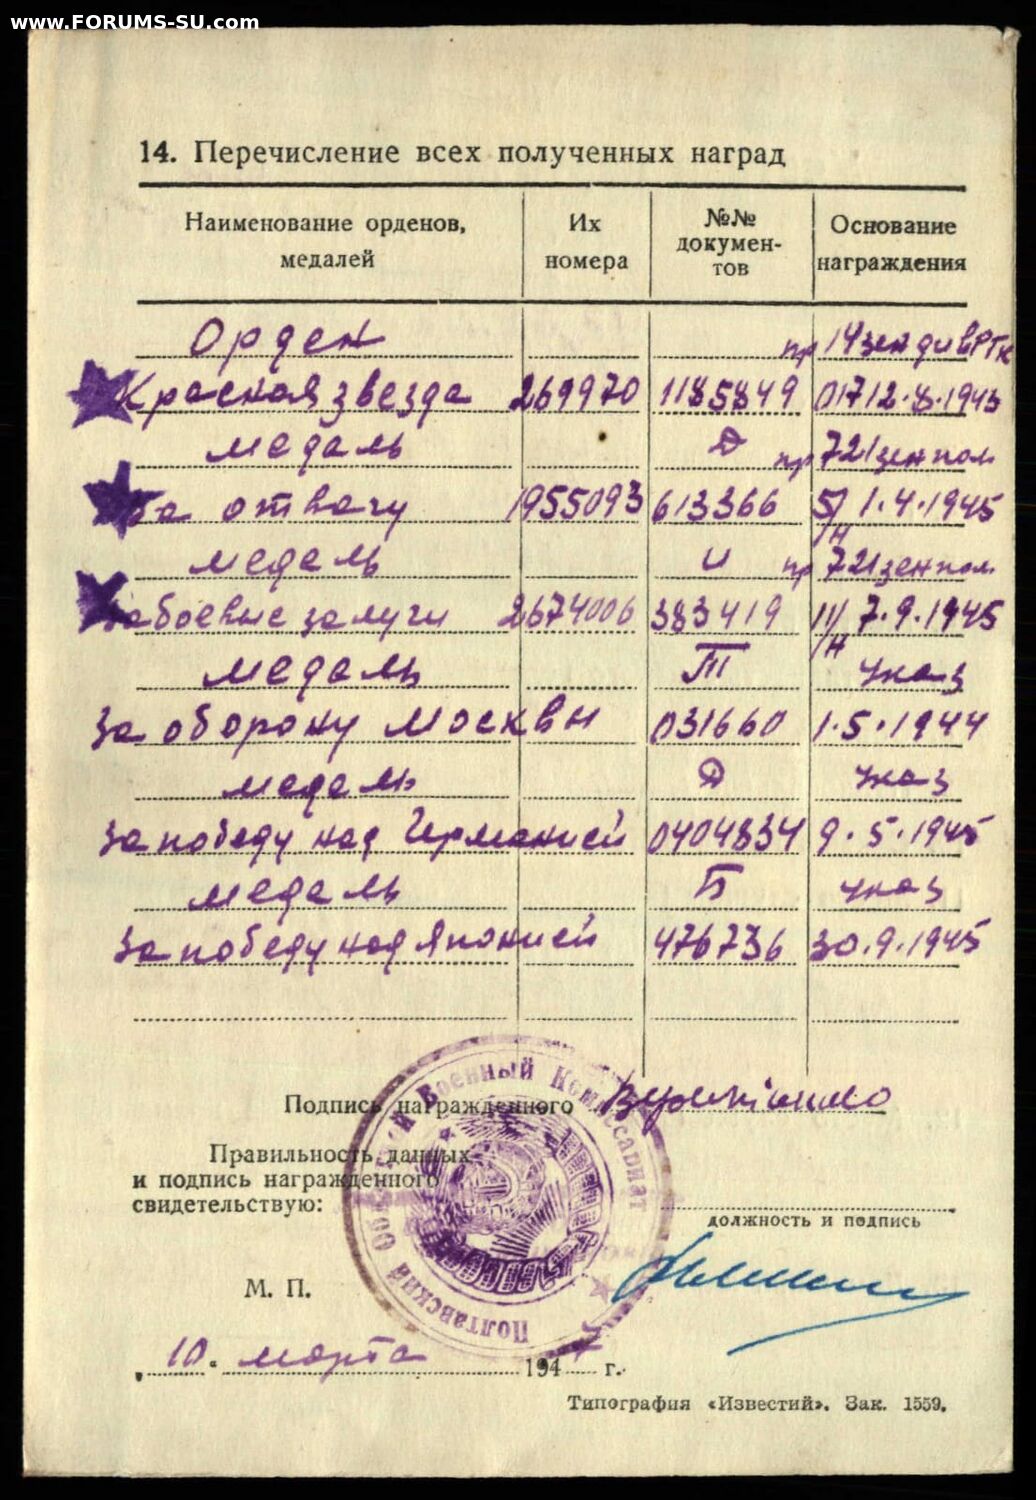 www.FORUMS-SU.com
14. Перечисление всех полученных наград
Наименование орденов, медалей
Их номера
№№ документов
Основание награждения
Орден пр 14 зен див РГК
Красная звезда 269970 1185849 017 12.8.1943
медаль Д пр 721 зен пол
За отвагу 1955093 613366 5/н 1.4.1945
медаль И пр 721 зен пол
За боевые залуги 2674006 383419 11/н 7.9.1945
медаль Т указ
За оборону Москвы 031660 1.5.1944
медаль Д указ
За победу над Германией 0404834 9.5.1945
медаль Б указ
За победу над Японией 476736 30.9.1945
Подпись награжденного
Правильность данных
и подпись награжденного
свидетельствую:
должность и подпись
Полтавский Областной Военный Комиссариат
М. П.
„10" марта 1947 г.
Типография «Известий». Зак. 1559.